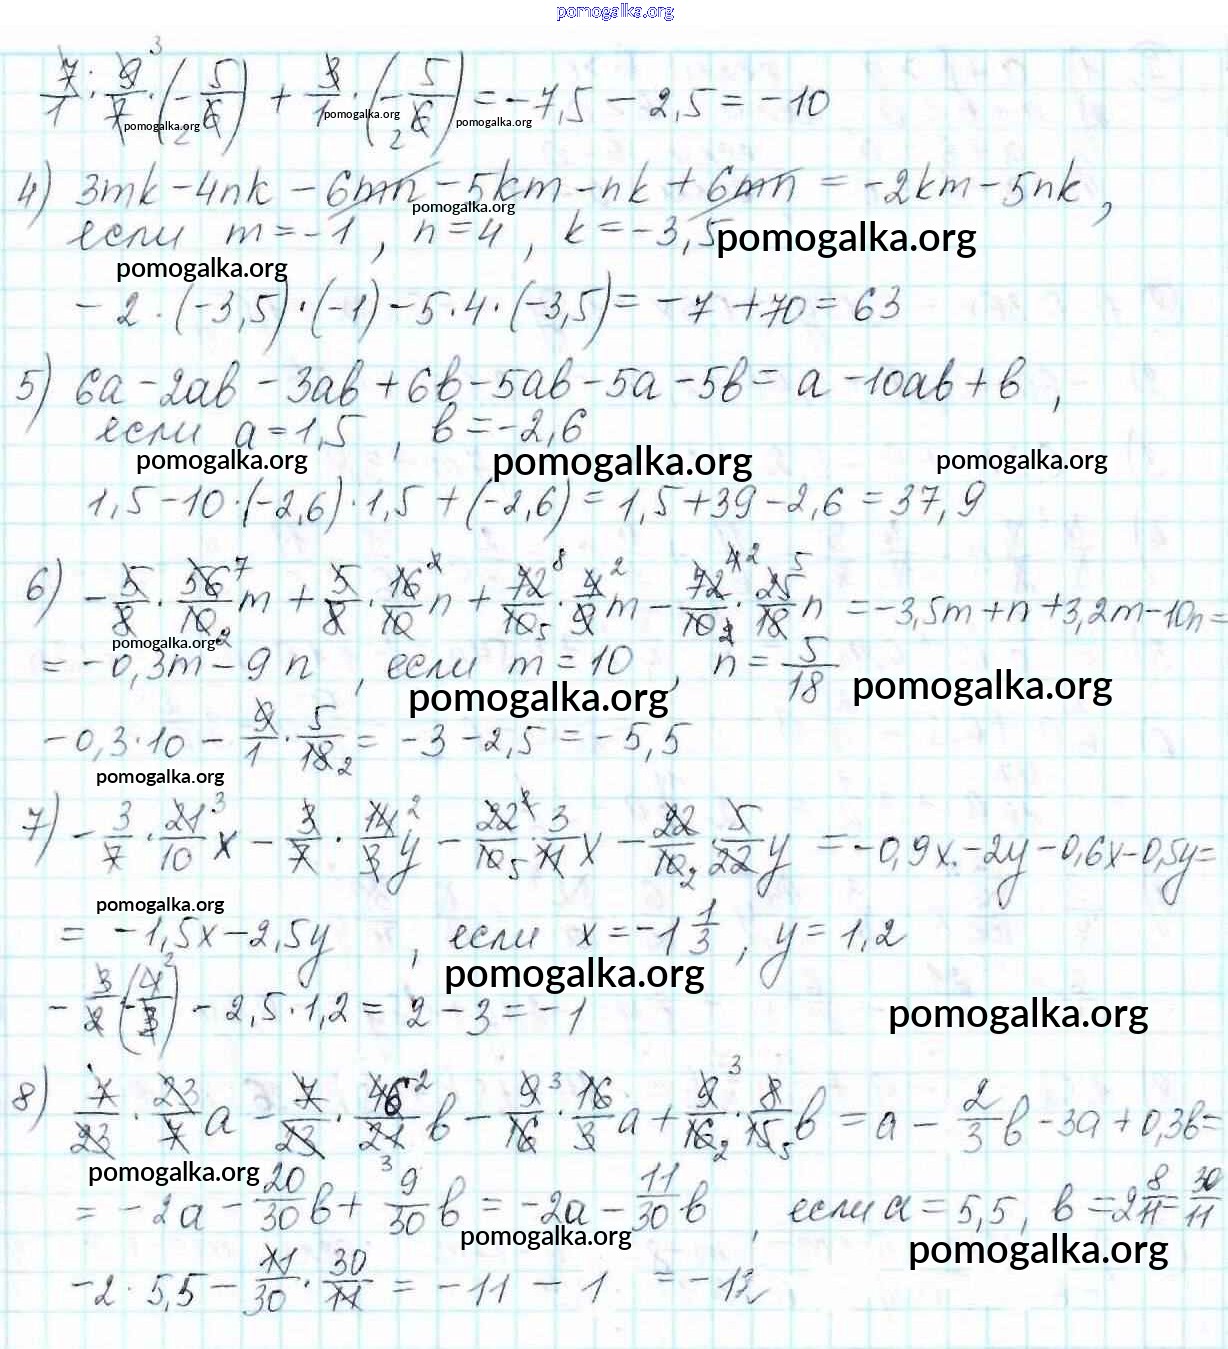 pomogalka.org
7/1 · 9/7 · (-5/6) + 3/1 · (-5/6) = -7,5 - 2,5 = -10
3
2
2
pomogalka.org pomogalka.org pomogalka.org
4) 3mk - 4nk - 6mn - 5km - nk + 6mn = -2km - 5nk,
pomogalka.org
если m = -1, n = 4, k = -3,5
pomogalka.org
pomogalka.org
- 2 · (-3,5) · (-1) - 5 · 4 · (-3,5) = -7 + 70 = 63
5) 6a - 2ab - 3ab + 6b - 5ab - 5a - 5b = a - 10ab + b,
если a = 1,5, b = -2,6
pomogalka.org pomogalka.org pomogalka.org
1,5 - 10 · (-2,6) · 1,5 + (-2,6) = 1,5 + 39 - 2,6 = 37,9
6) -5/8 · 56/10 m + 5/8 · 16/10 n + 72/10 · 4/9 m - 72/10 · 25/18 n = -3,5m + n + 3,2m - 10n =
pomogalka.org
= -0,3m - 9n, если m = 10, n = 5/18
pomogalka.org pomogalka.org
-0,3 · 10 - 9/1 · 5/18 = -3 - 2,5 = -5,5
pomogalka.org
7) -3/7 · 21/10 x - 3/7 · 14/3 y - 22/10 · 3/11 x - 22/10 · 5/22 y = -0,9x - 2y - 0,6x - 0,5y =
pomogalka.org
= -1,5x - 2,5y, если x = -1 1/3, y = 1,2
pomogalka.org
- 3/2 (-4/3) - 2,5 · 1,2 = 2 - 3 = -1
pomogalka.org
8) 7/23 · 23/7 a - 7/23 · 46/21 b - 9/16 · 16/3 a + 9/16 · 8/15 b = a - 2/3 b - 3a + 0,3b =
pomogalka.org
= -2a - 20/30 b + 9/30 b = -2a - 11/30 b, если a = 5,5, b = 2 8/11 = 30/11
pomogalka.org
pomogalka.org
-2 · 5,5 - 11/30 · 30/11 = -11 - 1 = -12